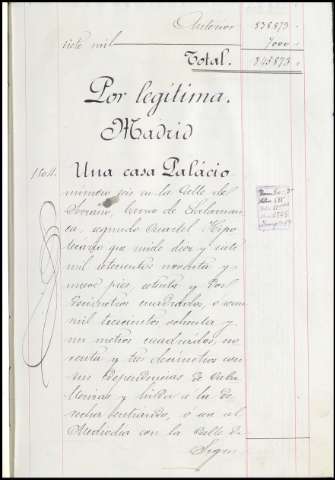 Anterior 838873
siete mil 7000
Total. 845873
Por legítima.
Madrid
Una casa Palácio
número seis en la Calle de
Serrano, barrio de Salaman-
ca, segundo Cuartel Hipo-
tecario que mide diez y siete
mil setecientos noventa y
nueve pies, setenta y dos
decimetros cuadrados, o sean
mil trescientos setenta y
un metros cuadrados, no-
venta y tres decimetros con
sus dependencias de Caba-
llerizas y linda a la de-
recha entrando, o sea al
Mediodia con la Calle de